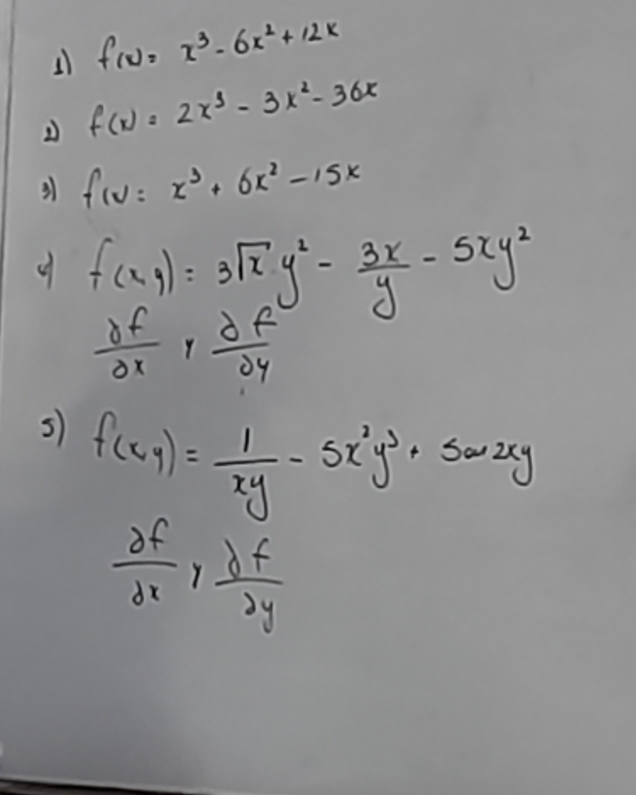 1) f(x)= x³ - 6x² + 12x
2) f(x) = 2x³ - 3x² - 36x
3) f(x) = x³ + 6x² - 15x
4) f(x,y) = 3√x y² - 3x/y - 5xy²
∂f/∂x y ∂f/∂y
5) f(x,y) = 1/xy - 5x²y³ + 2xy
∂f/∂x y ∂f/∂y